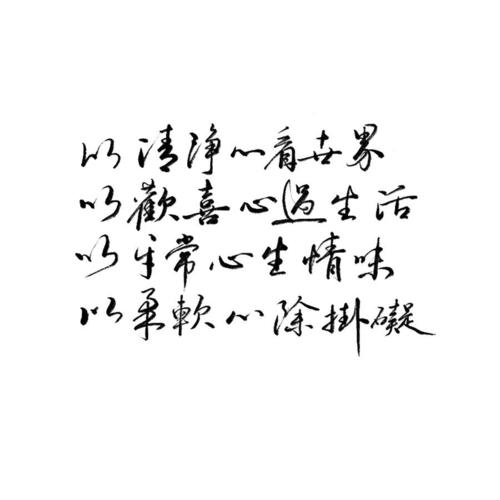 以清淨心看世界
以歡喜心過生活
以平常心生情味
以柔軟心除掛礙